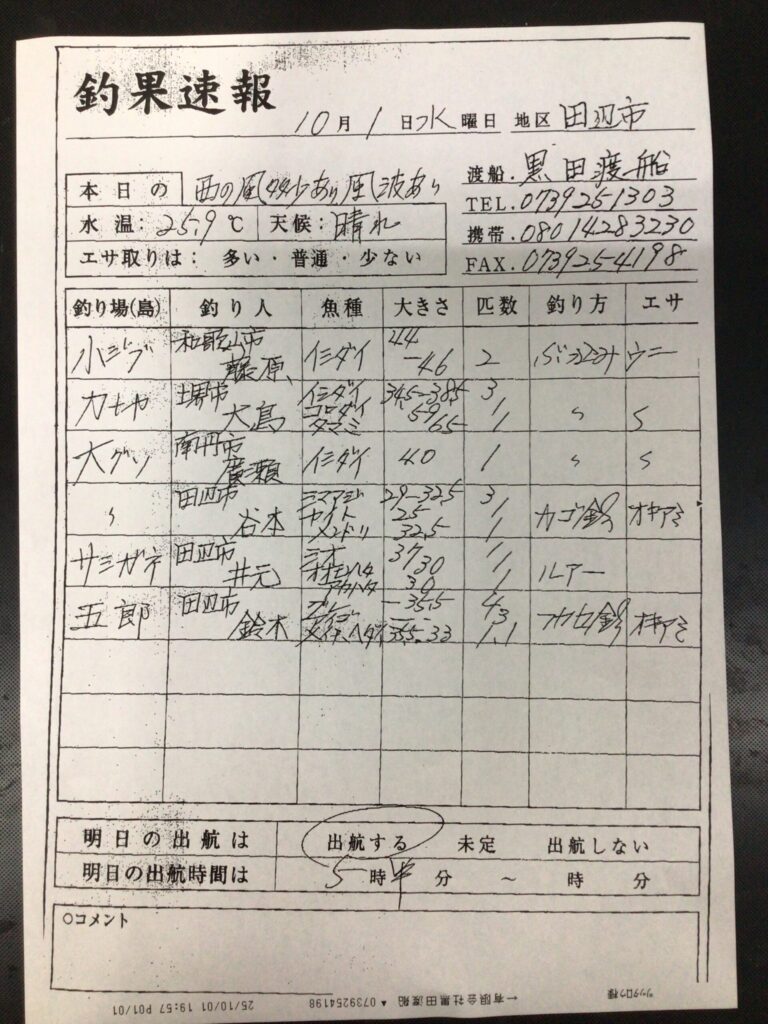 釣果速報
10月1日水曜日 地区 田辺市
渡船.黒田渡船
本日の 西の風多少あり風波あり
TEL.0739251303
水温:25.9℃ 天候:晴れ
携帯.08014283230
エサ取りは: 多い・普通・少ない
FAX.0739254198
釣り場(島) 釣り人 魚種 大きさ 匹数 釣り方 エサ
和歌山市 44
藤原 イシダイ -46 2 ウニ
堺市 イシダイ 34.5-38.5 3
大島 コロダイ 59 1 〃 〃
タマミ 65 1
南丹市
廣瀬 イシダイ 40 1 〃 〃
〃 田辺市 シマアジ 29-32.5 3
谷本 25 1 カゴ釣 オキアミ
メンドリ 32.5 1
田辺市 シオ 37 1
井元 オオモンハタ 30 1 ルアー
アカハタ 30 1
五郎 田辺市 グレ -35.5 4
鈴木 3 フカセ釣 オキアミ
35.5.33 1.1
明日の出航は 出航する 未定 出航しない
明日の出航時間は 5時半分 ~ 時 分
○コメント
ツッタロウ様
←有限会社黒田渡船 ▲ 0739254198
25/10/01 19:57 P01/01